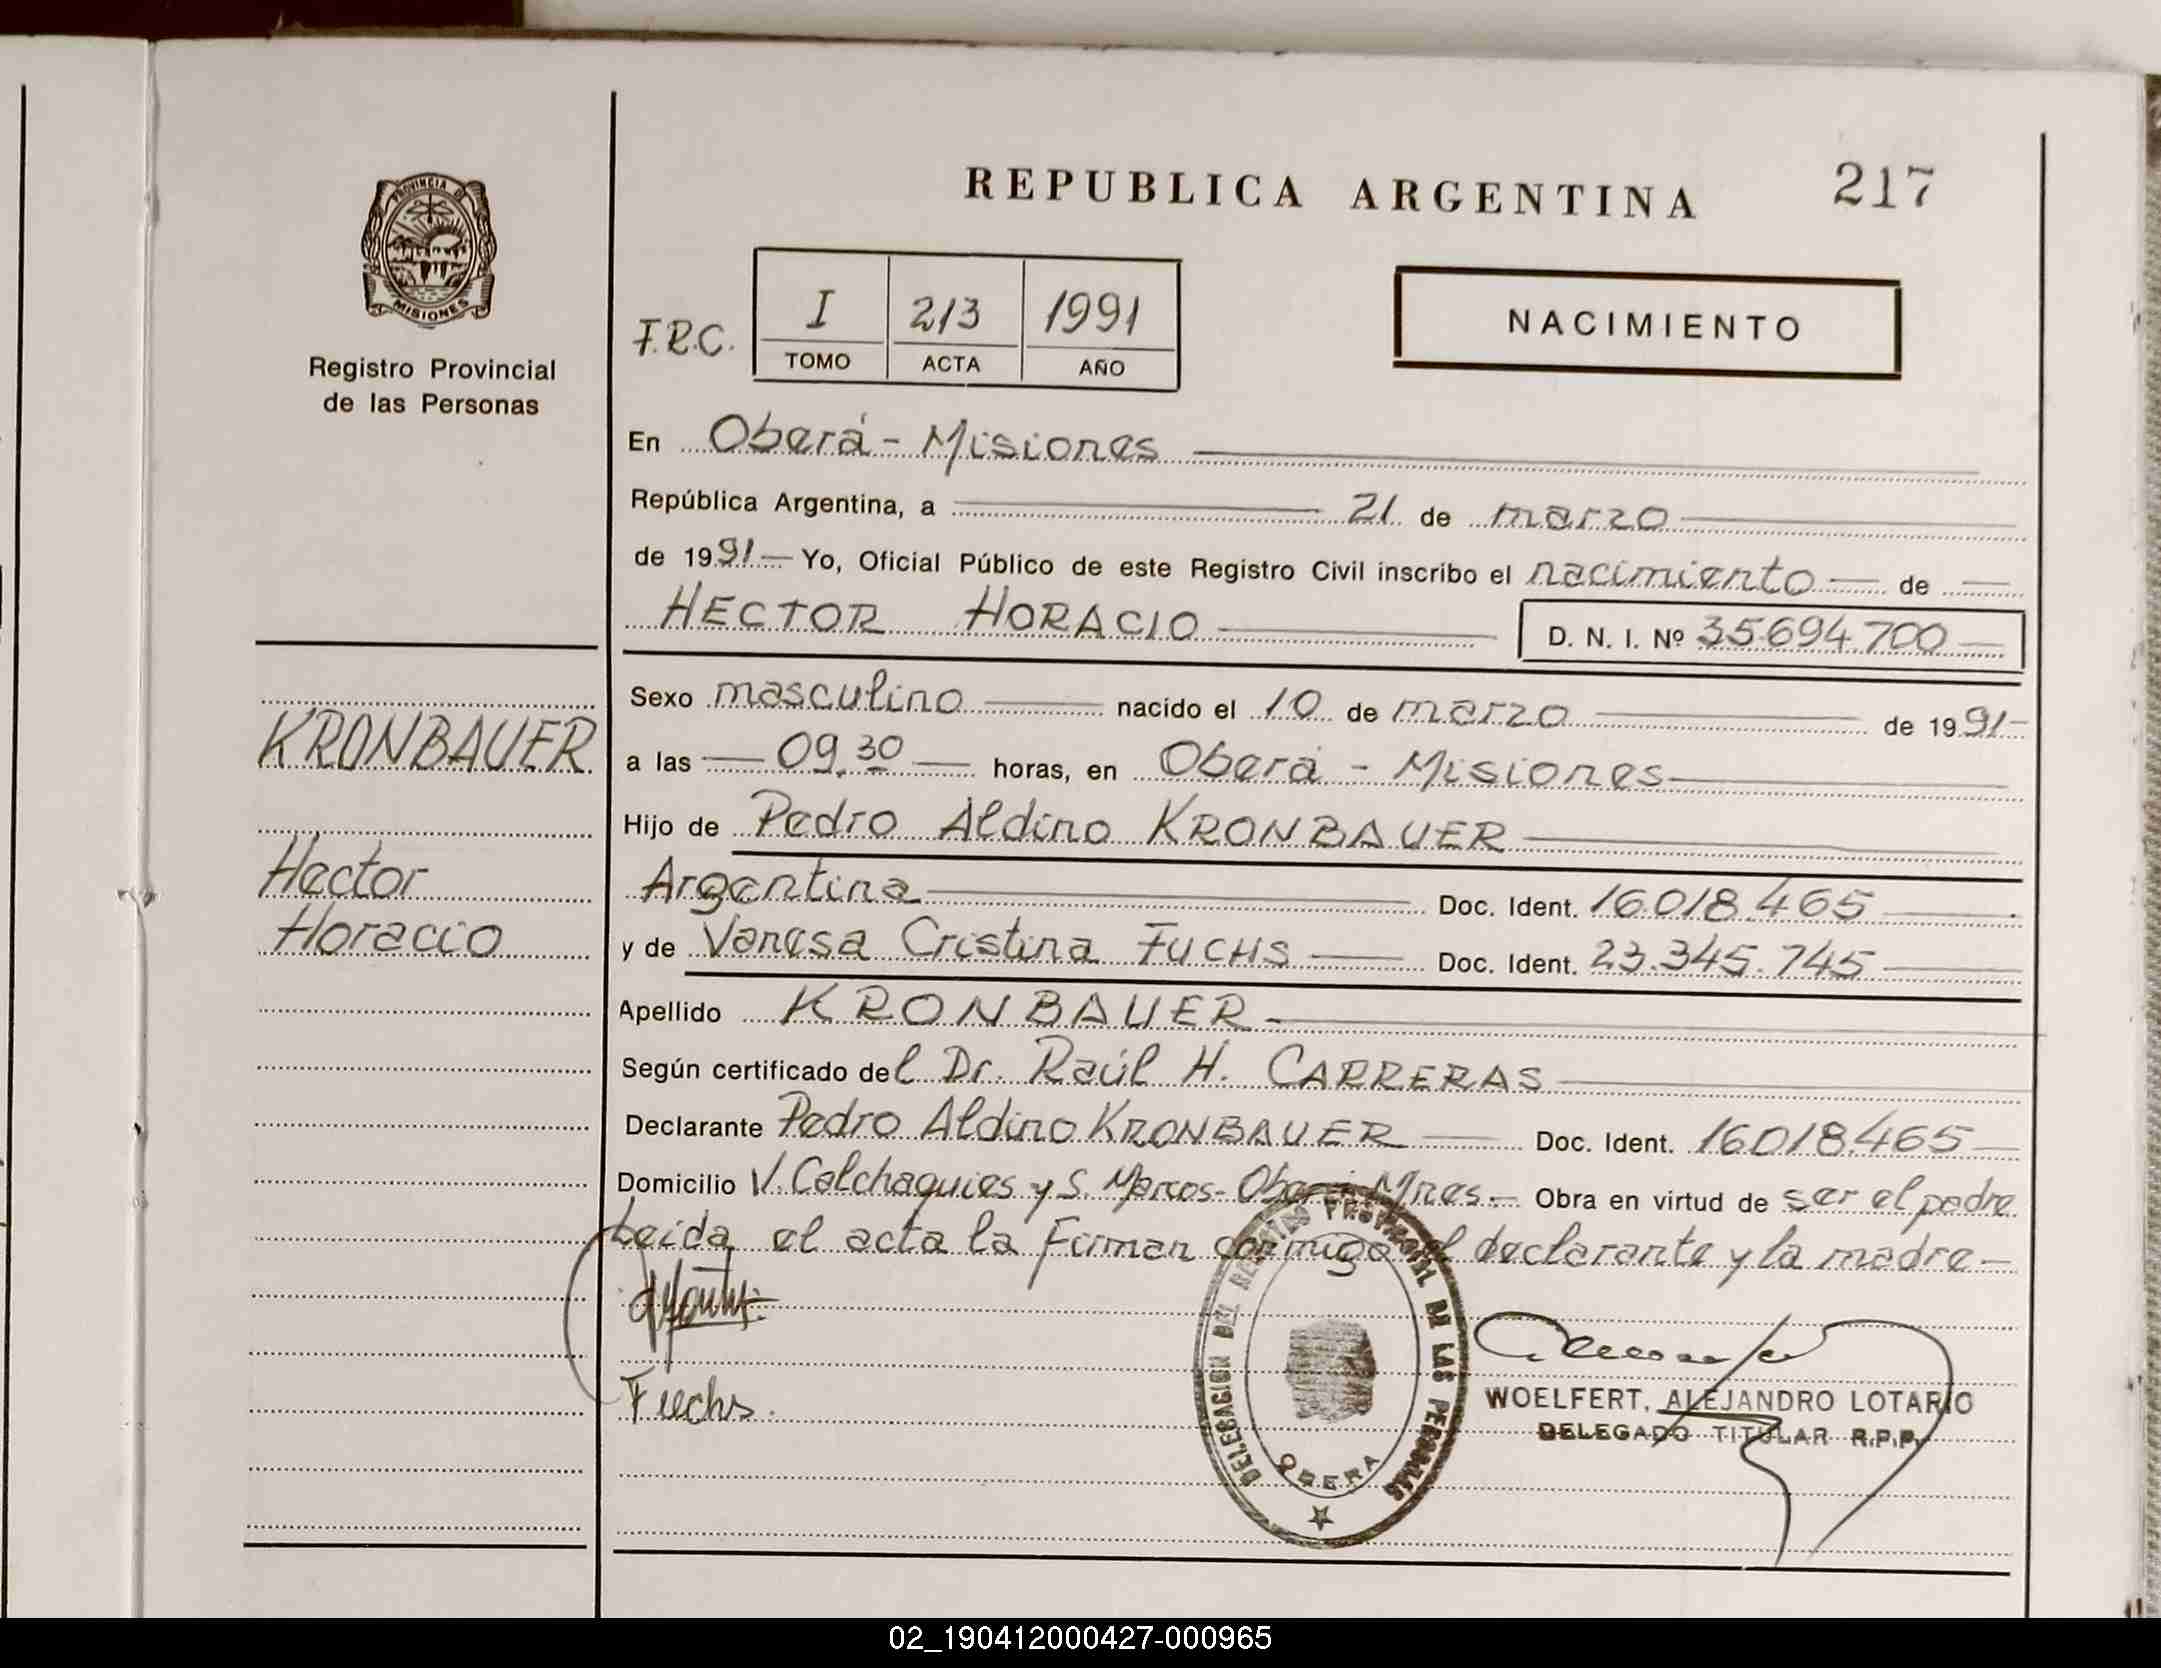 REPUBLICA ARGENTINA
217
PROVINCIA DE
MISIONES
Registro Provincial
de las Personas
F.R.C.
I 213 1991
TOMO ACTA AÑO
NACIMIENTO
En Oberá - Misiones
República Argentina, a 21 de marzo
de 1991 Yo, Oficial Público de este Registro Civil inscribo el nacimiento de
HECTOR HORACIO D. N. I. Nº 35.694.700
Sexo masculino nacido el 10 de marzo de 1991
a las 09.30 horas, en Oberá - Misiones
Hijo de Pedro Aldino KRONBAUER
Argentina Doc. Ident. 16.018.465
y de Vanesa Cristina FUCHS Doc. Ident. 23.345.745
Apellido KRONBAUER
Según certificado del Dr. Raúl H. CARRERAS
Declarante Pedro Aldino KRONBAUER Doc. Ident. 16.018.465
Domicilio V. Calchaquies y S. Marcos - Oberá Mnes. Obra en virtud de ser el padre
Leida el acta la firman conmigo el declarante y la madre
Fuchs.
KRONBAUER
Hector
Horacio
DELEGACION DEL REGISTRO PROVINCIAL DE LAS PERSONAS
OBERA
WOELFERT, ALEJANDRO LOTARIO
DELEGADO TITULAR R.P.P.
02_190412000427-000965